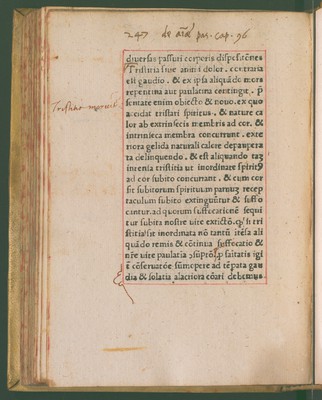 247 de
pas. cap. 96
diuersas passuri corporis dispositiones
Tristitia siue animi dolor. contraria
est gaudio. & ex ipsa aliquãdo mora
repentina aut paulatina contingit. p̃
sentate enim obiecto & nouo. ex quo
accidat tristari spiritus. & nature ca
lor ab extrinsecis membris ad cor. &
intrinseca membra concurrunt. exte
riora gelida naturali calore depaupera
ta delinquendo. & est aliquando
intensa tristitia ut inordinate
ad cor subito concurrant. & cum cor
sit subitorum spirituum paruum recep
taculum subito extinguũtur & suffo
cantur. ad quorum suffocationẽ sequi
tur subita nostre uite si tri
stitia sit inordinata nõ tantũ itẽsa ali
quãdo remis & cõtinua suffocatio &
nr̃e uite paulatia sanitatis igi
ĩ cõseruatõe sũmopere ad tẽpata gau
dia & solatia alactiora debemus